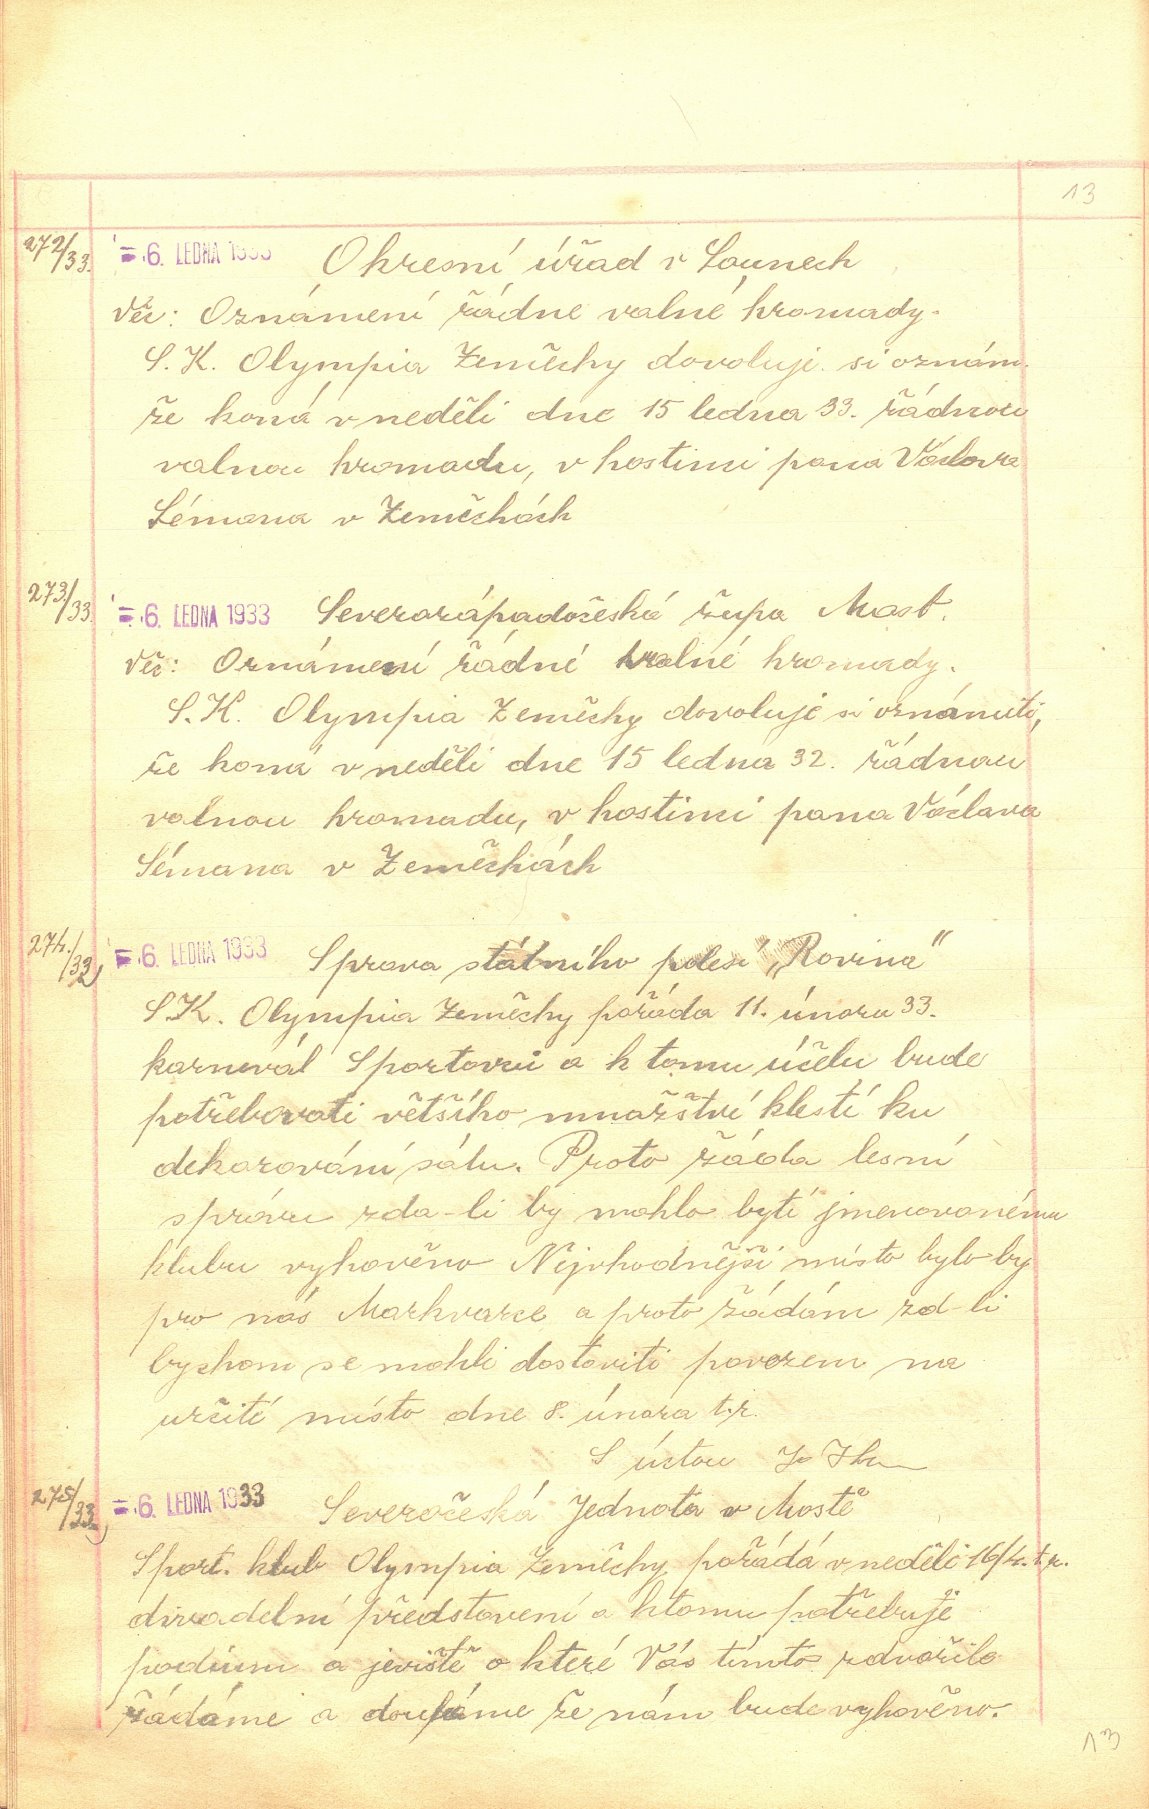 13
272/33. = 6. LEDNA 1933 Okresní úřad v Lounech
Věc: Oznámení řádne valné hromady.
S. K. Olympia Zeměchy dovoluje si oznám.
že koná v neděli dne 15 ledna 33. řádnou
valnou hromadu, v hostinci pana Václava
Lémana v Zeměchách
273/33. = 6. LEDNA 1933 Severozápadočeská župa Most.
Věc: Oznámení řádné valné hromady.
S. K. Olympia Zeměchy dovoluje si oznámiti,
že koná v neděli dne 15 ledna 32. řádnou
valnou hromadu, v hostinci pana Václava
Lémana v Zeměchách
274./33, = 6. LEDNA 1933 Sprava státního polesí „Rovina"
S.K. Olympia Zeměchy pořáda 11. února 33.
karneval Sportovní a k tomu účelu bude
potřebovati většího množství klestí ku
dekorování sálu. Proto žáda lesní
správu zda-li by mohlo byti jmenovanému
klubu vyhověno Nejvhodnější místo bylo by
pro nás Markvarec a proto žádám zd-li
bychom se mohli dostaviti povozem na
určité místo dne 8. února t.r.
S úctou
275/33., = 6. LEDNA 1933 Severočeská Jednota v Mostě
Sport. klub Olympia Zeměchy pořádá v neděli 16/4. t.r.
divadelní představení a ktomu potřebuje
podium a jeviště o které Vás tímto zdvořile
žádáme a doufáme že nám bude vyhověno.
13